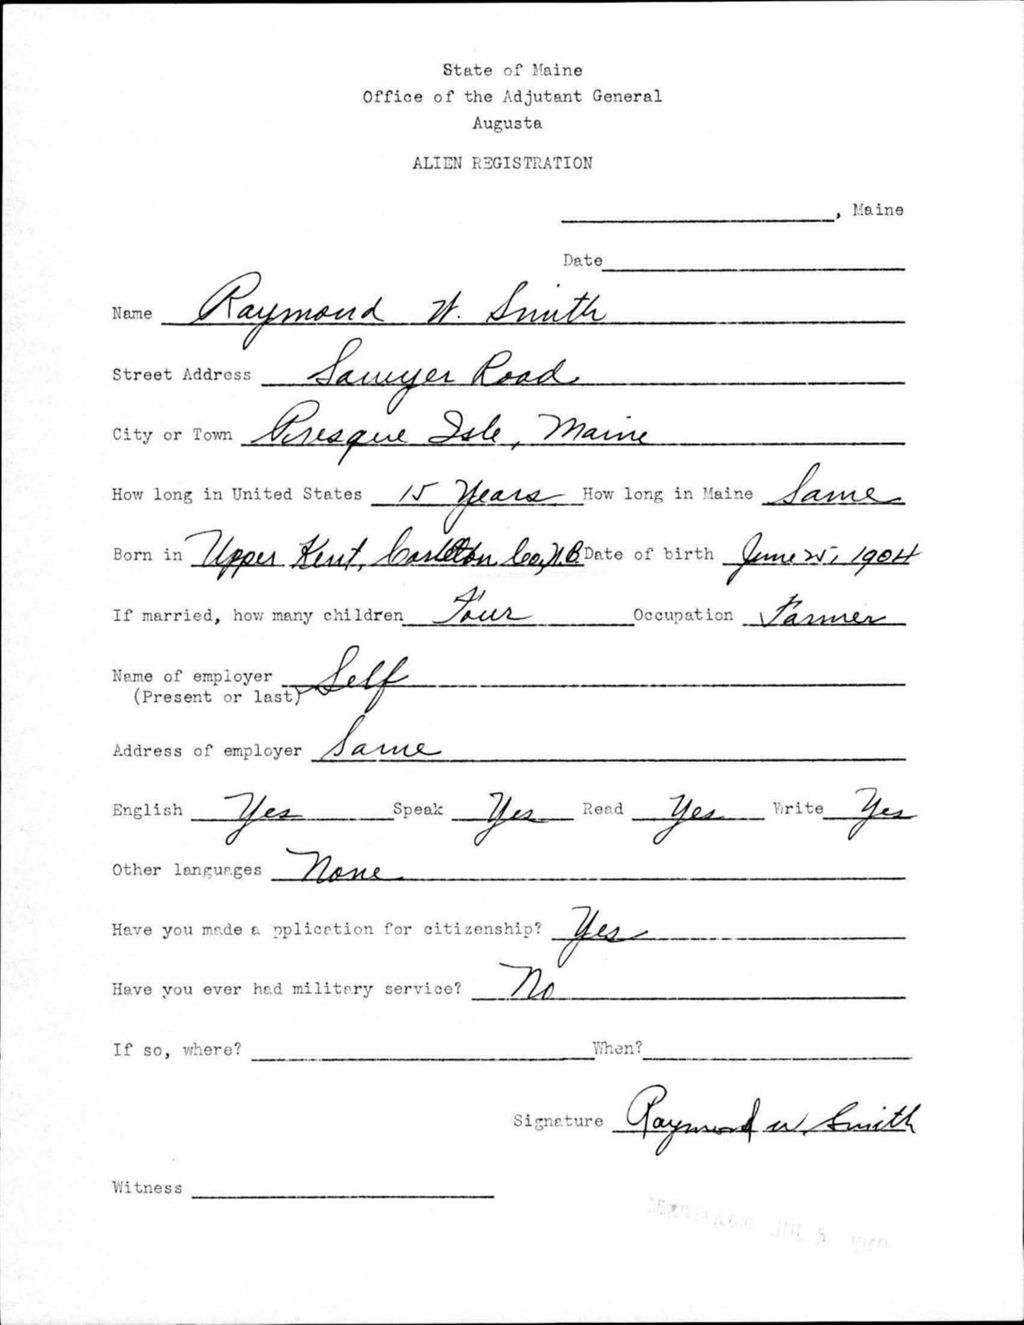 State of Maine
Office of the Adjutant General
Augusta
ALIEN REGISTRATION
, Maine
Date
Name Raymond W. Smith
Street Address Sawyer Road
City or Town Presque Isle, Maine
How long in United States 15 Years How long in Maine Same
Born in Upper Kent, Carleton Co, N.B Date of birth June 25, 1904
If married, how many children Four Occupation Farmer
Name of employer Self
(Present or last)
Address of employer Same
English Yes Speak Yes Read Yes Write Yes
Other languages None
Have you made a pplication for citizenship? Yes
Have you ever had military service? No
If so, where? When?
Signature Raymond W Smith
Witness
JUL